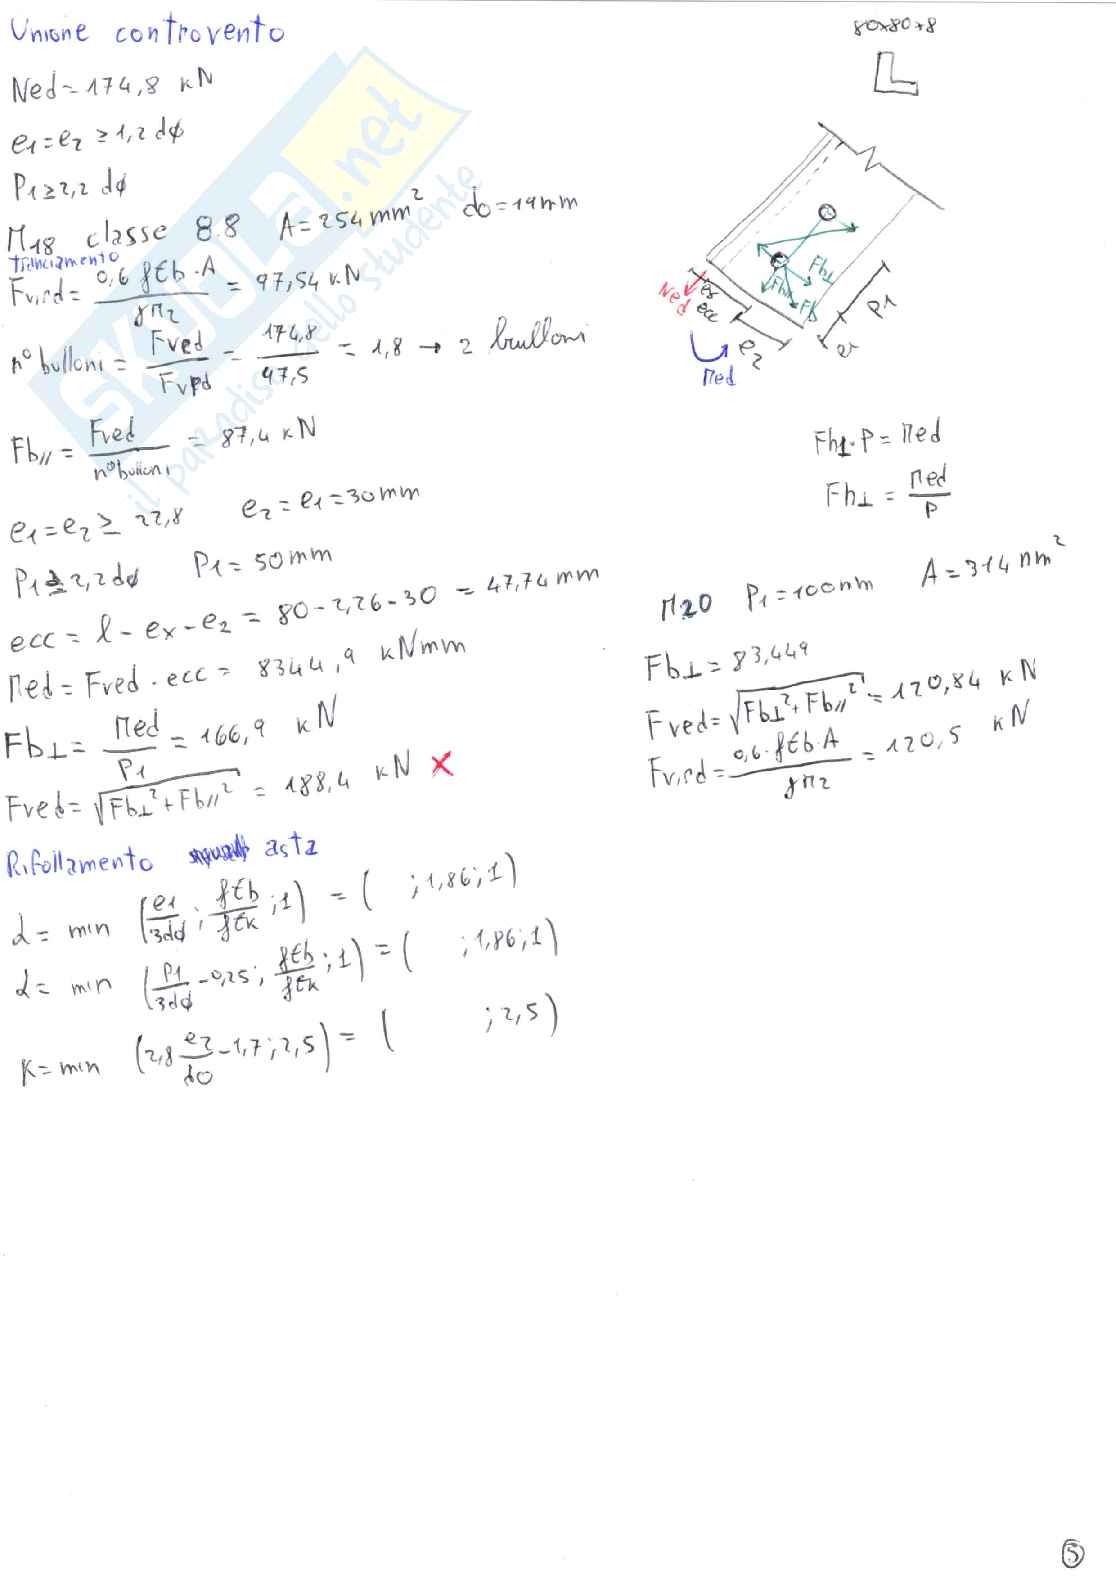 Unione controvento
80x80x8
Ned = 174,8 kN
e1 = e2 ≥ 1,2 dϕ
P1 ≥ 2,2 dϕ
M18 classe 8.8 A = 254 mm² do = 19 mm
tranciamento
Fv,rd = 0,6 ftb · A / γM2 = 97,54 kN
n° bulloni = Fved / Fvrd = 174,8 / 97,5 = 1,8 → 2 bulloni
Fb// = Fved / n° bulloni = 87,4 kN
e1 = e2 ≥ 22,8 e2 = e1 = 30 mm
P1 ≥ 2,2 dϕ P1 = 50 mm
ecc = l - ex - e2 = 80 - 2,26 - 30 = 47,74 mm
Med = Fved · ecc = 8344,9 kNmm
Fb⊥ = Med / P1 = 166,9 kN
Fved = √(Fb⊥² + Fb//²) = 188,4 kN X
Rifollamento asta
α = min (e1 / 3dϕ ; ftb / ftk ; 1) = ( ; 1,86 ; 1)
α = min (P1 / 3dϕ - 0,25 ; ftb / ftk ; 1) = ( ; 1,86 ; 1)
K = min (2,8 e2 / do - 1,7 ; 2,5) = ( ; 2,5)
Fb⊥
Fb//
Fb
Ned
ex
ecc
e2
e1
P1
Med
Fb⊥ · P = Med
Fb⊥ = Med / P
M20 P1 = 100 mm A = 314 mm²
Fb⊥ = 83,449
Fved = √(Fb⊥² + Fb//²) = 120,84 kN
Fv,rd = 0,6 · ftb · A / γM2 = 120,5 kN
5
SKUOLA.net
il paradiso dello studente